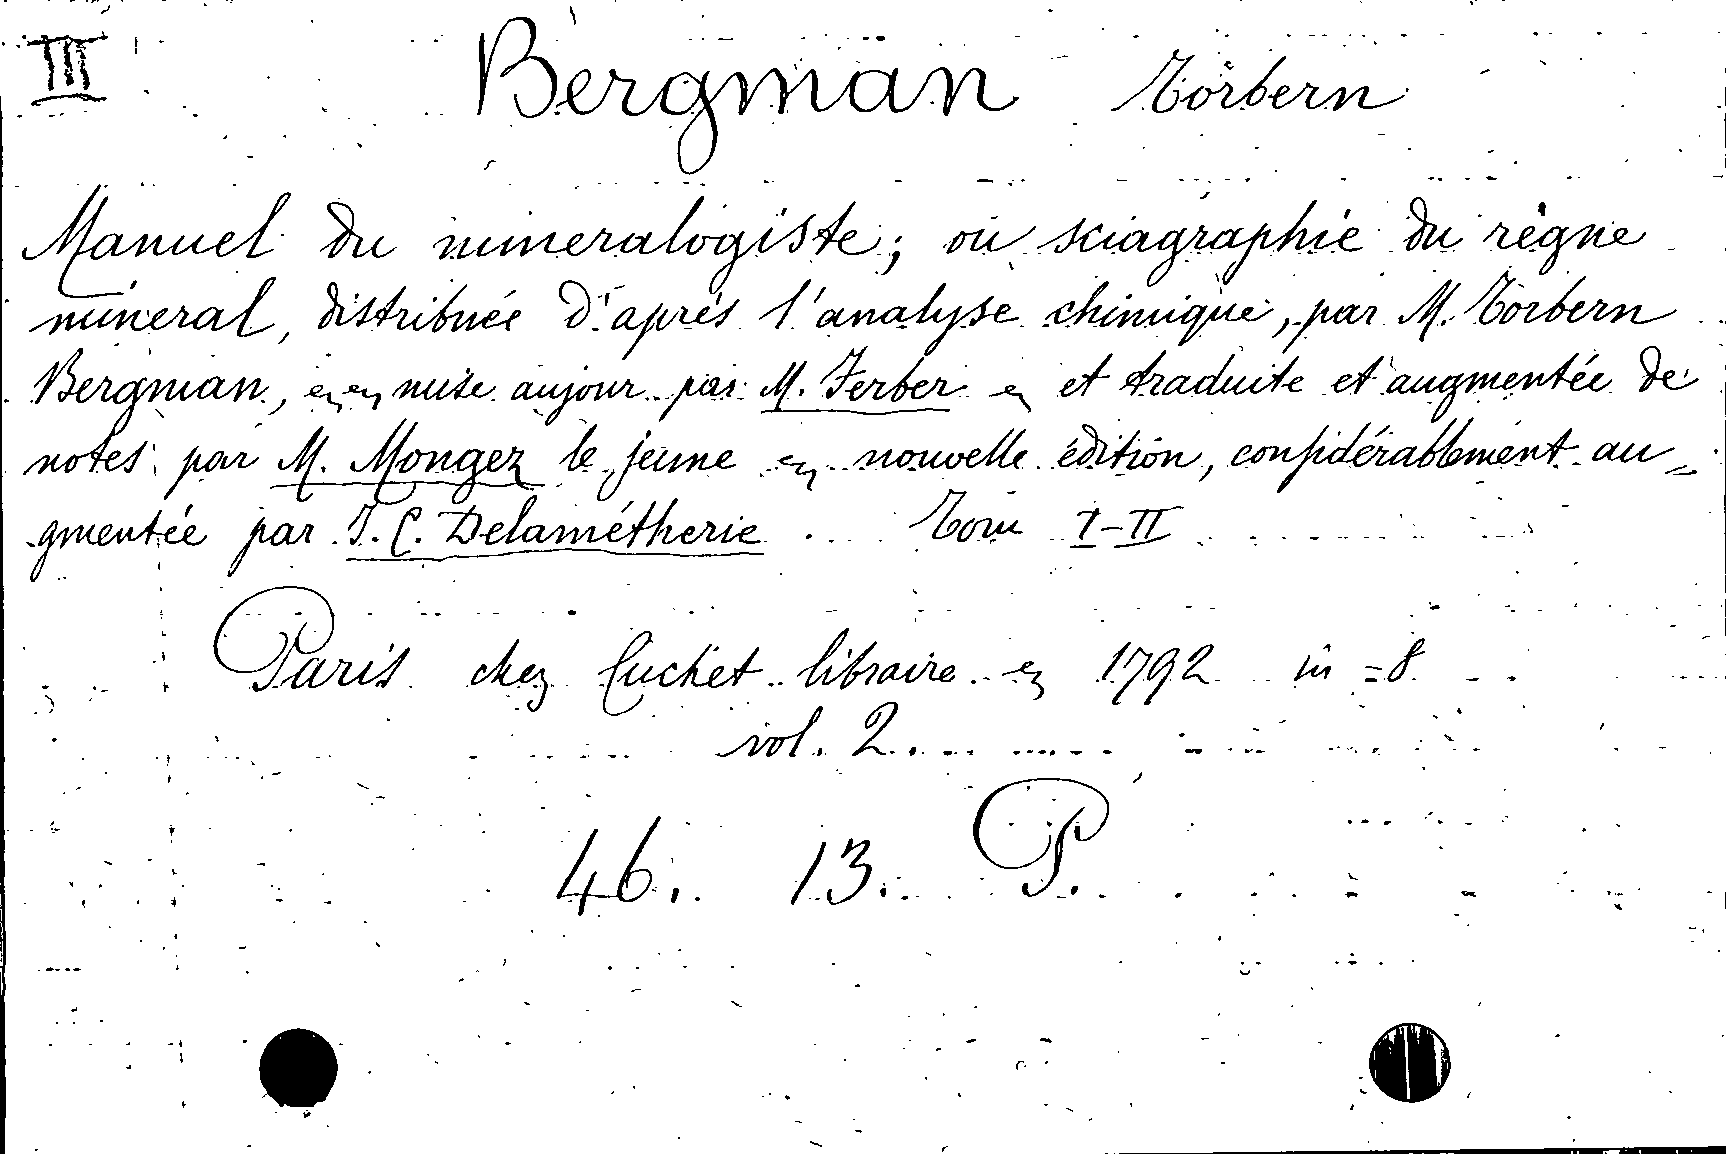 III
Bergman Torbern
Manuel du mineralogiste; ou sciagraphie du règne
mineral, distribuée d'après l'analyse chimique, par M. Torbern
Bergman, mise aujour par M. Ferber et traduite et augmentée de
notes par M. Mongez le jeune nouvelle édition, considérablement au=
gmentée par J. C. Delamétherie Tom I-II
Paris chez Cuchet libraire 1792 in =8
vol. 2.
46. 13. P.